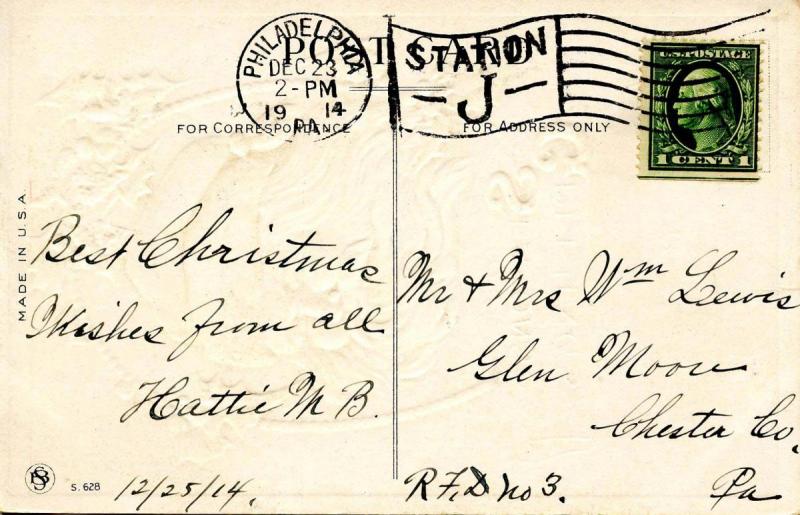 POST CARD
PHILADELPHIA
DEC 23
2-PM
19 14
PA
STATION
J
U.S. POSTAGE
1 CENT 1
FOR CORRESPONDENCE
FOR ADDRESS ONLY
MADE IN U.S.A.
Best Christmas
Wishes from all
Hattie M B.
12/25/14.
S. 628
Mr & Mrs Wm Lewis
Glen Moore
Chester Co.
Pa
R.F.D no 3.